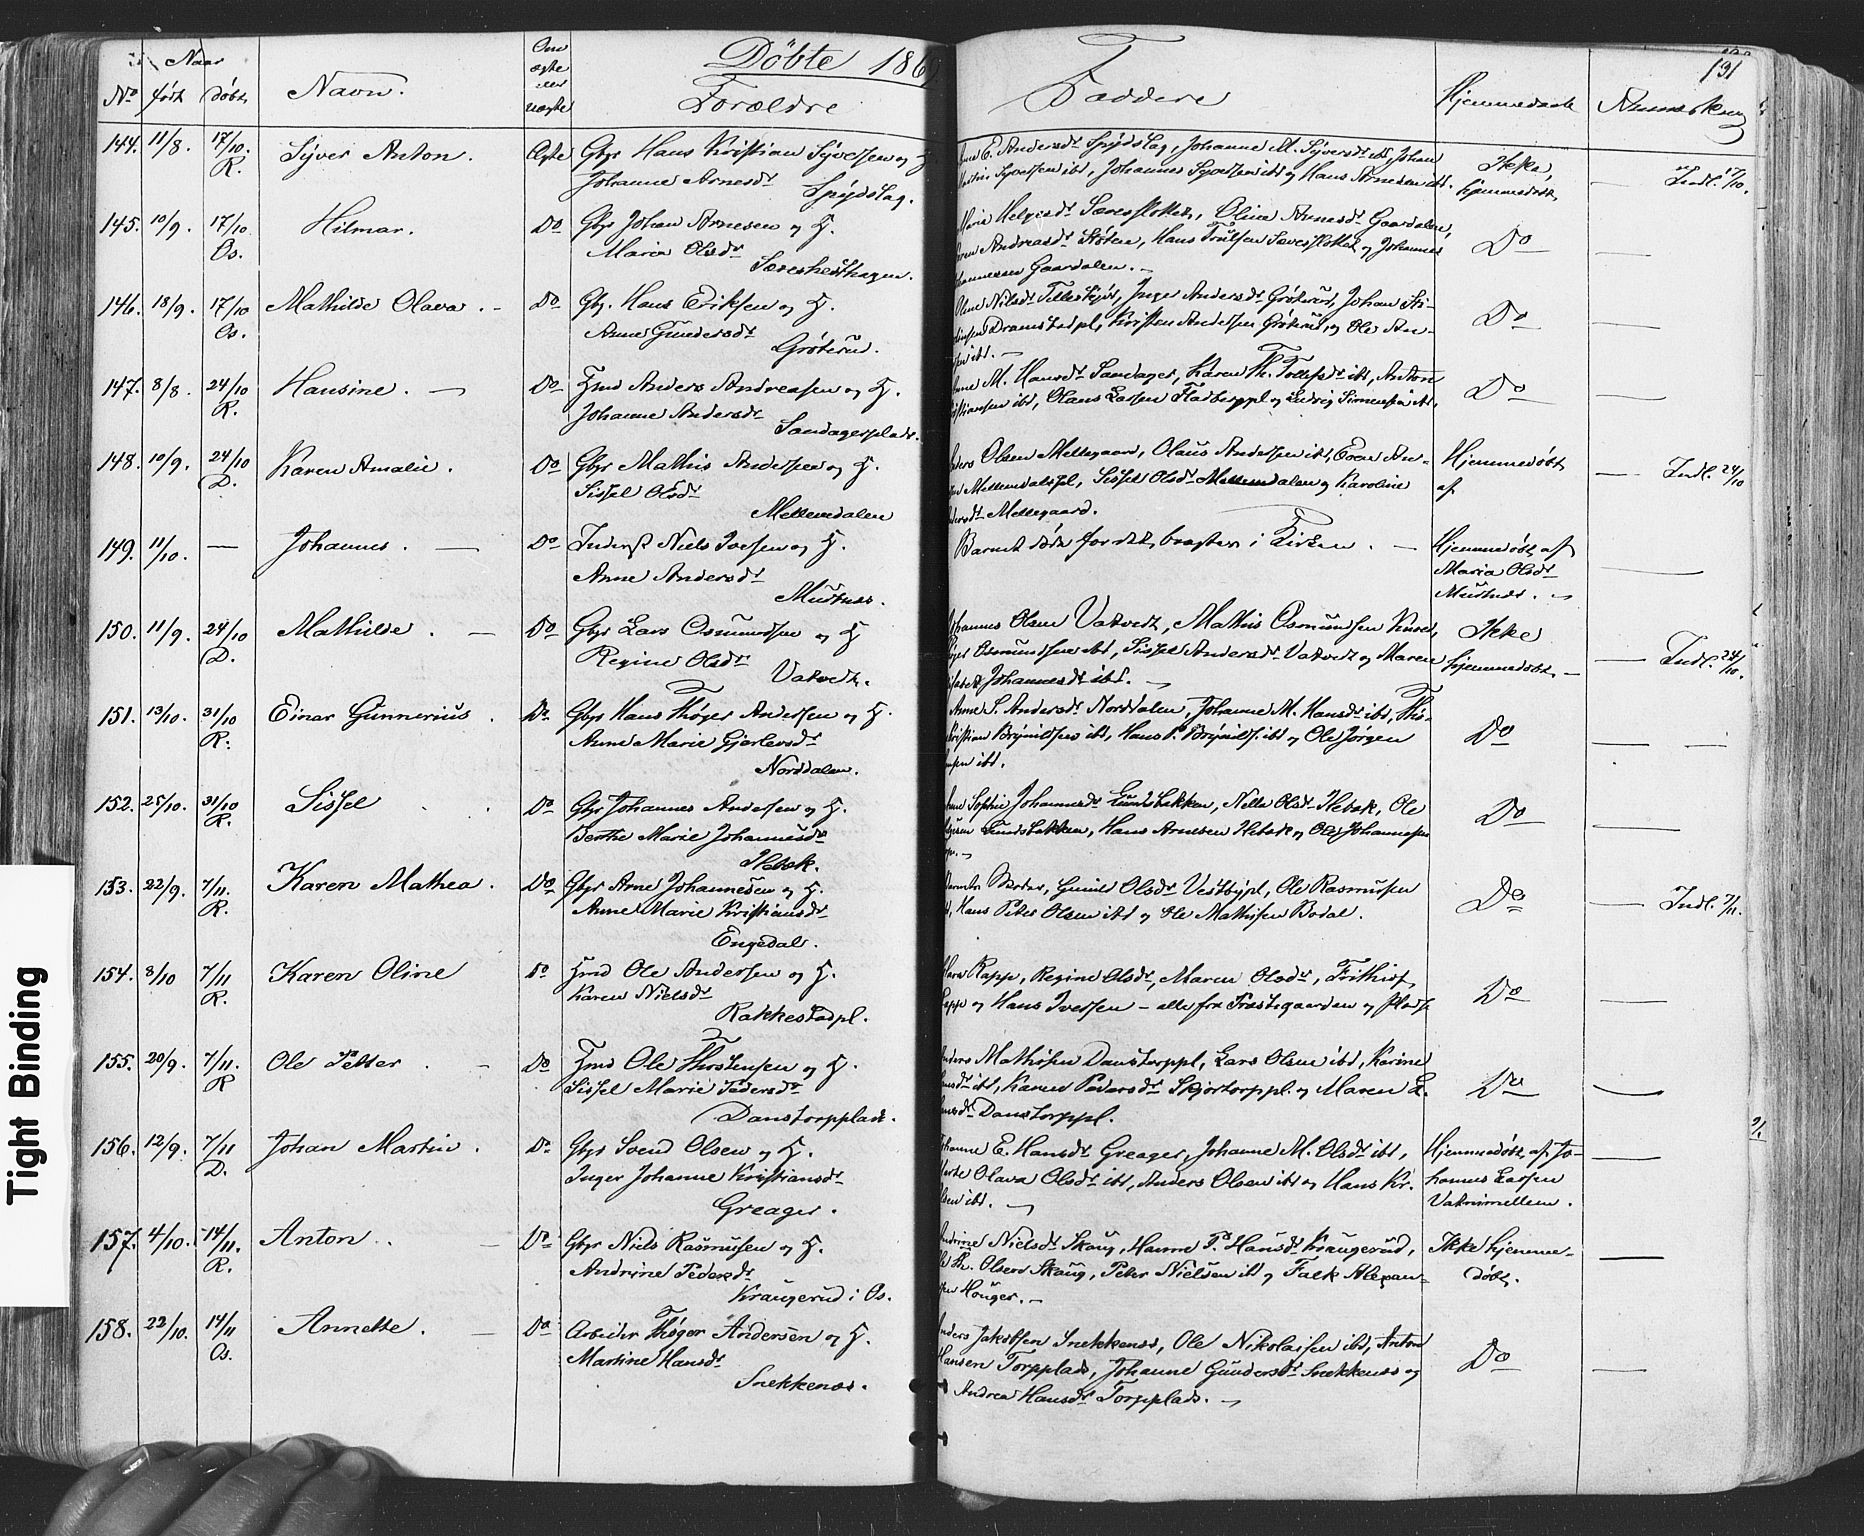 Döbte 186
Faddere
131
Naar
No födt döbt Navn. Om ægte eller uægte Forældre Hjemmedøbt Anmærkning
144. 11/8. 17/10. R. Syver Anton. Ægte Gbr Hans Kristian Syversen og H.
Johanne Arnesdr
Spydslag.
E. Andersdr Spydslag, Johanne M. Syversdr ibd, Johan
Syversen ibd, Johannes Syversen ibd og Hans Arnesen ibd.
Ikke hjemmedøbt. — Indl. 17/10.
145. 10/9. 17/10 Os. Hilmar. Do Gbr Johan Arnesen og H.
Maria Olsdr
Helgesdr Oliva Arnesdr Gaardalen,
Andreasdr Støten, Hans Trulsen og Johannes
Gaardalen. —
Do —
146. 18/9. 17/10 Os. Mathilde Olava. - Do Gb. Hans Eriksen og H.
Anne Gundersdr
Gröterud.
Nilsdr Inger Andersdr Gröterud, Johan
Dramstadpl, Kristen Andersen Gröterud, og Ole An-
ibd. —
Do —
147. 8/8. 24/10 R. Hansine. — Do Hmd Anders Andreasen og H.
Johanne Andersdr
Sandagerplads.
M. Hansdr Sandager, Karen Th. Tollefsdr ibd, Anton
ibd, Olaus Larsen og Ludvig Simensen ibd.
Do —
148. 10/9. 24/10 D. Karen Amalie. Do Gbr Mathis Andersen og H.
Sissel Olsdr
Mellemdalen
Olsen Mellegaard, Olaus Andersen ibd, Even An-
Mellemdalspl, Sissel Olsdr Mellemdalen og Karoline
Mellegaard.
Hjemmedøbt af — Indl. 24/10
149. 11/10. — Johannes. — Do Inderst Niels Iversen og H.
Anne Andersdr
Mustnes.
Barnet døde før det bragtes i Kirken. —
Hjemmedøbt af
Maria Olsdr
Mustnes. —
150. 11/9. 24/10 D. Mathilde. — Do Gbr Lars Osmundsen og H
Regine Olsdr
Vatvedt.
Olsen Vatvedt, Mathis Osmundsen
Osmundsen ibd, Sissel Andersdr Vatvedt og Maren
Johannesdr ibd. —
Ikke
hjemmedøbt. — Indl. 24/10.
151. 13/10. 31/10 R. Einar Gunnerius. Do. Gbr Hans Thöger Andersen og H.
Anne Marie Gjerlovsdr
Norddalen.
Anne S. Andersdr Norddalen, Johanne M. Hansdr ibd, Thö-
Brynildsen ibd, Hans P. Brynilds. ibd og Ole Jörgen
ibd.
Do — —
152. 25/10. 31/10 R. Sissel Do Gbr Johannes Andersen og H.
Berthe Marie Johannesdr
Hebæk.
Sophie Johannesdr Lundsbakken, Nelle Olsdr Hebæk, Ole
Lundsbakken, Hans Arnesen Hebæk og Ole Johannesen
Do —
153. 22/9. 7/11. R. Karen Mathea. Do Gbr Arne Johannesen og H.
Anne Marie Kristiansdr
Engedal.
Moder, Gunild Olsdr Vestbypl, Ole Rasmussen
Hans Peter Olsen ibd og Ole Mathisen Bodal.
Do — Indl. 7/11.
154. 3/10 7/11 R. Karen Oline Do Hmd Ole Andersen og H.
Karen Nielsdr
Rakkestadpl.
Rappe, Regine Olsdr, Maren Olsdr, Frithiof
og Hans Iversen — alle fra Præstegaarden og Plads
Do —
155. 20/9. 7/11. R Ole Petter - Do Hmd Ole Thorstensen og H.
Sissel Marie Pedersdr
Danstorpplads.
Mathisen Danstorppl, Lars Olsen ibd, Karine
ibd, Karen Pedersdr Skjortorppl. og Maren L.
Danstorppl.
Do —
156. 12/9. 7/11 D. Johan Martin. Do Gbr Svend Olsen og H.
Inger Johanne Kristiansdr
Greager.
E. Hansdr Greager, Johanne M. Olsdr ibd,
Olava Olsdr ibd, Anders Olsen ibd og Hans Kr.
ibd. —
Hjemmedøbt af Jo-
hannes Larsen
—
157. 4/10. 14/11. R. Anton. — Do Gbr Niels Rasmussen og H.
Andrine Pedersdr
Kraugerud i Os.
Nielsdr Skaug, Hanne P. Hansdr Kraugerud,
Th. Olsen Skaug, Peter Nielsen ibd og Falk Alexan-
Houger. —
Ikke hjemme-
døbt. —
158. 22/10. 14/11 Os. Annette. — Do Arbeider Thöger Andersen og H.
Martine Hansdr
Snekkenes.
Jakobsen Snekkenes, Ole Nikolaisen ibd, Anton
Hansen Torpplads, Johanne Gundersdr Snekkenes og
Andrea Hansdr Torpplads. —
Do —
Tight Binding